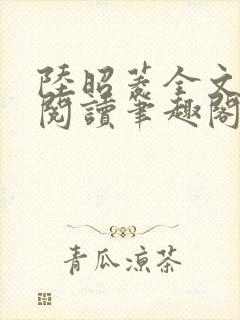 陸昭菱全文
閱讀筆趣閣
青瓜涼茶